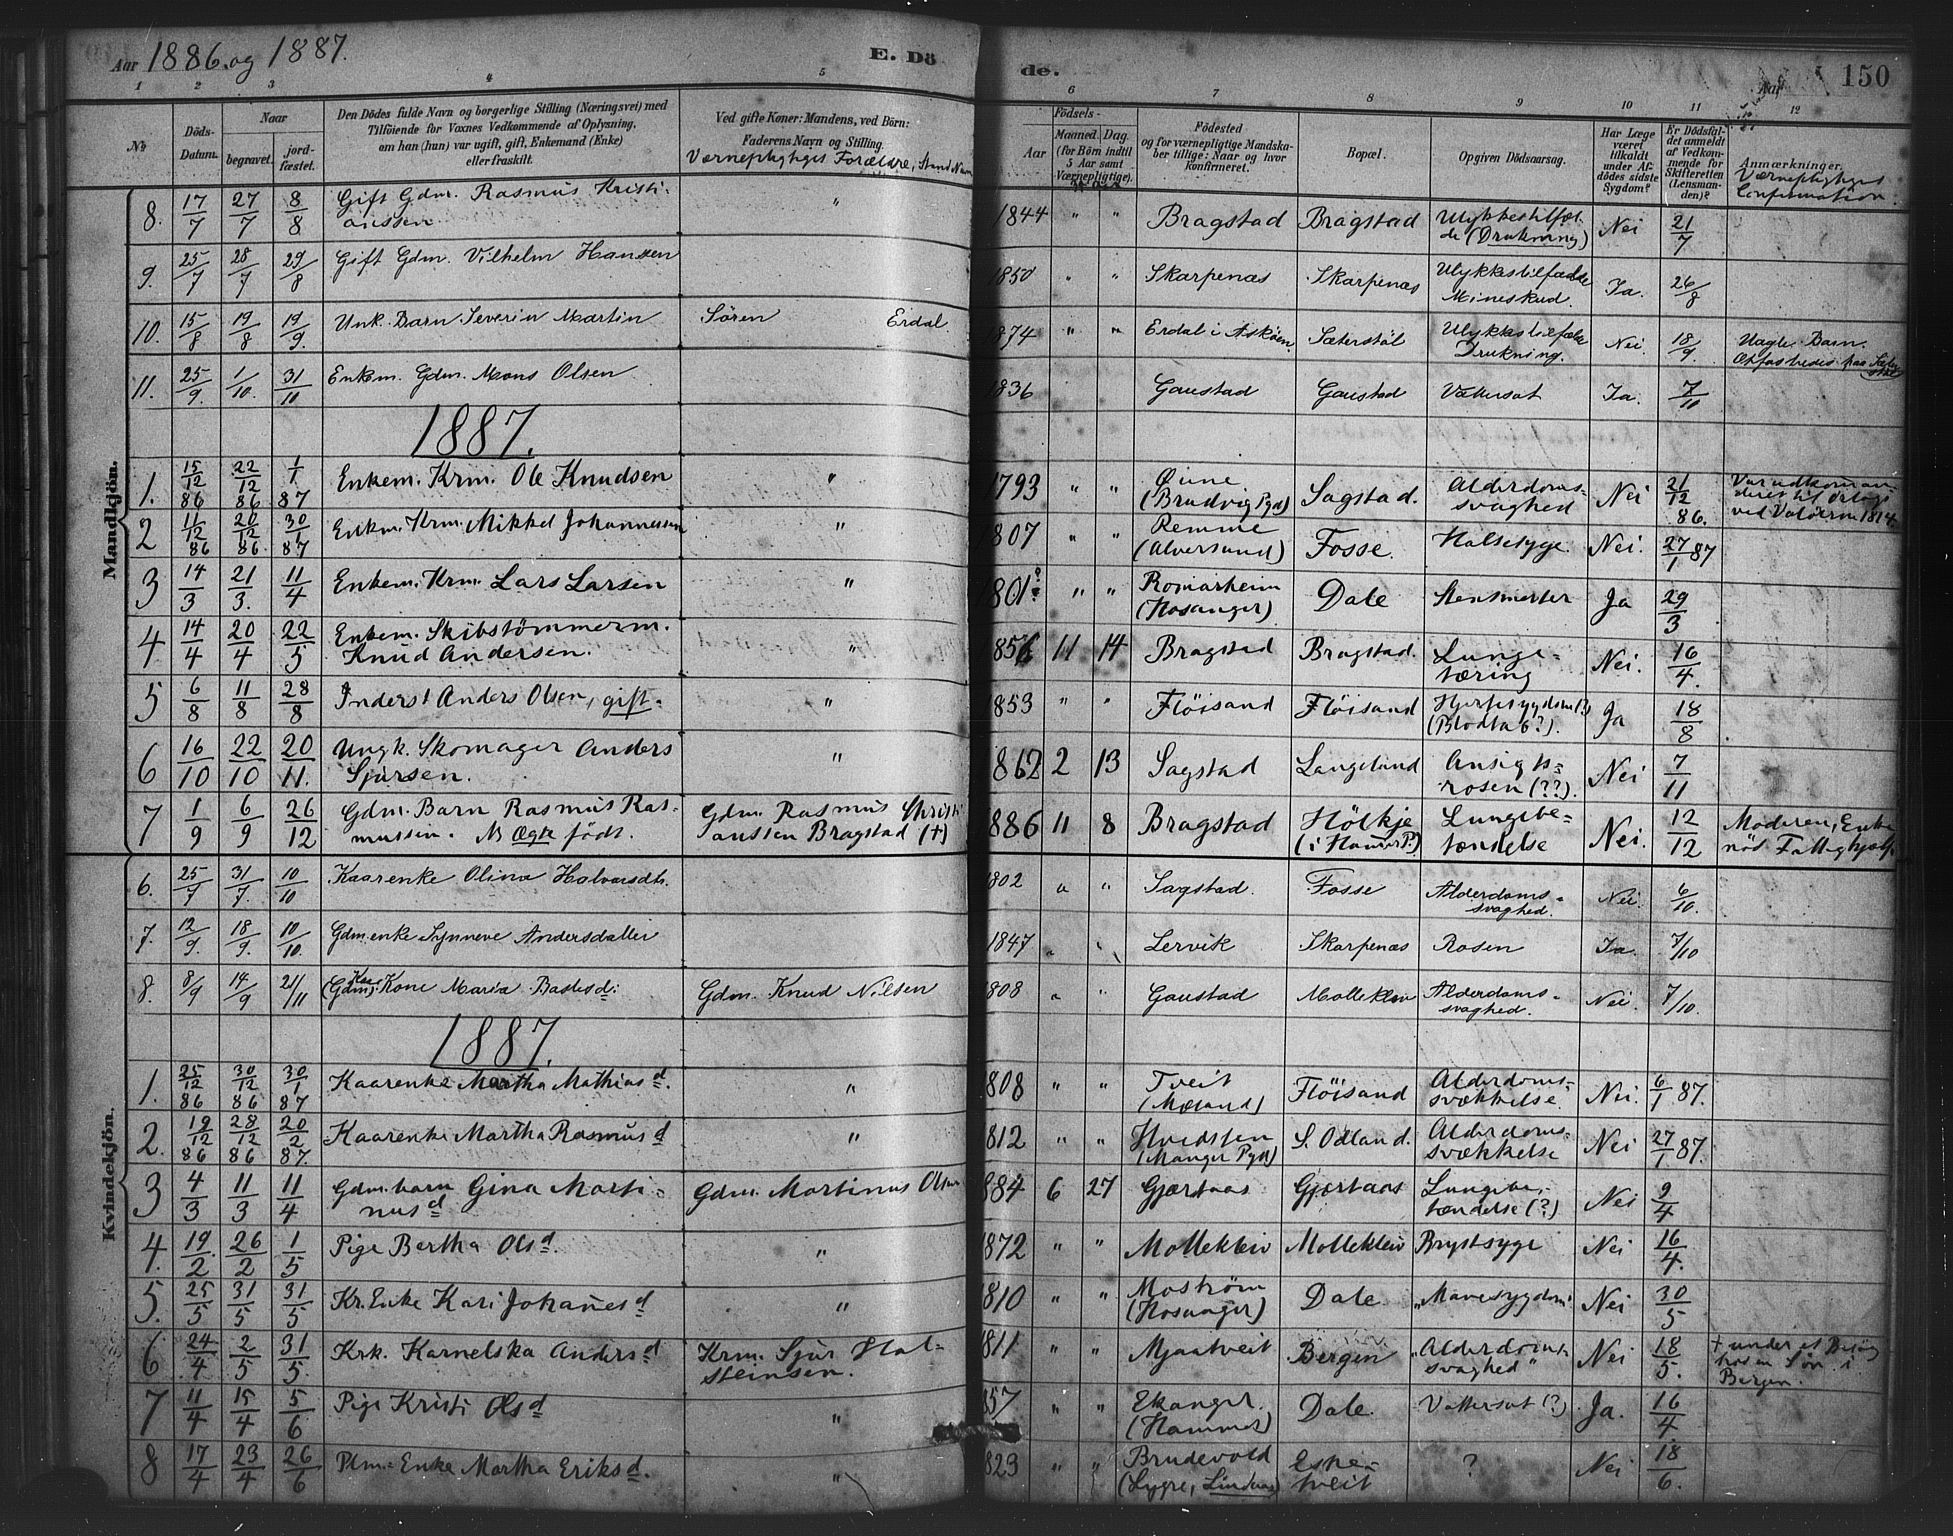 Aar 1886. og 1887.
E. Dö
de.
Aar
150
1 2 3 4 5 6 7 8 9 10 11 12
No
Döds-Datum.
Naar
begravet.
jord-fæstet.
Den Dödes fulde Navn og borgerlige Stilling (Næringsvei) med
Tilföiende for Voxnes Vedkommende af Oplysning,
om han (hun) var ugift, gift, Enkemand (Enke)
eller fraskilt.
Ved gifte Koner: Mandens, ved Börn:
Faderens Navn og Stilling.
Værnepligtiges Forældre, Stand
Födsels-
Aar
Maaned. Dag.
(for Börn indtil
5 Aar samt
Værnepligtige).
Födested
og for værnepligtige Mandska-
ber tillige: Naar og hvor
konfirmeret.
Bopæl.
Opgiven Dödsaarsag.
Har Læge
været
tilkaldt
under Af-
dödes sidste
Sygdom?
Er Dödsfal-
det anmeldt
af Vedkom-
mende for
Skifteretten
(Lensman-
den)?
Anmærkninger.
Værnepligtiges
Confirmation.
Mandkjön.
8. 17/7 27/7 8/8 Gift Gdm. Rasmus Kristi- " 1844 " " Bragstad Bragstad Ulykkestilfæl- Nei 21/7
anssen de (Drukning)
9. 25/7 28/7 29/8 Gift Gdm. Vilhelm Hanssen 1850 " " Skarpenæs Skarpenæs Ulykkestilfælde Ja. 26/8
Mineskud.
10. 15/8 19/8 19/9. Unk. Barn Severin Martin Sören Erdal. 1874 " " Erdal i Askøen. Sæterstöl Ulykkestilfælde Nei. 18/9. Uægte Barn.
Drukning. Opfostredes paa
11. 25/9. 1/10. 31/10 Enkem. Gdm. Mons Olsen 1836 Gaustad Gaustad Vattersot Ja. 7/10
1887.
1. 15/12 86 22/12 86 1/1 87 Enkem. Krm. Ole Knudsen " 1793 " " Øine Sagstad. Alderdoms- Nei 21/12 86. Var udkomman-
(Brudvig Pgd) svaghed deret til Orlogs
ved Valöerne 1814.
2 11/12 86 20/12 86. 30/1 87 Enkem. Krm. Mikkel Johannessen " 1807 " " Remme Fosse. Halsesyge. Nei. 27/1 87
(Alversund)
3 14/3 21/3. 11/4 Enkem. Krm. Lars Larsen " 1801? " " Romarheim Dale Stensmerter Ja 29/3
(Hosanger)
4 14/4 20/4 22/5 Enkem. Skibstömmerm. 1856 11 14 Bragstad Bragstad. Lunge- Nei. 16/4.
Knud Andersen. " tæring
5 6/8 11/8 28/8 Inderst Anders Olsen, gift. " 1853 " " Flöisand Flöisand Hjertesygdom (?) Ja 18/8
(Blodtab?).
6 16/10 22/10 20/11. Ungk. Skomager Anders " 1862 2 13 Sagstad Langeland Ansigts- Nei 7/11
Sjursen. rosen (??).
7 1/9 6/9 26/12 Gdm. Barn Rasmus Ras- Gdm. Rasmus Christi 1886 11 8 Bragstad Hölkje Lungebe- Nei. 12/12 Moderen, Enke
mussen. NB Ægte födt. anssen Bragstad (+) (i Hammer P.) tændelse nöd Fattighjælp.
Kvindekjön.
6. 25/7 31/7. 10/10 Kaarenke Olina Halvorsdtr. 1802 " " Sagstad. Fosse Alderdoms- Nei. 6/10.
svaghed.
7. 12/9. 18/9. 10/10. Gdm.enke Synneve Andersdatter 1847 " " Lervik Skarpenæs Rosen Ja. 7/10
8. 8/9 14/9 21/11 (Gdm) Kaar Kone Maria Bastesd: Gdm. Knud Nilsen 1808 " " Gaustad Mølleklev Alderdoms- Nei. 7/10.
svaghed.
1887.
1. 25/12 86 30/12 86 30/1 87 Kaarenke Martha Mathiasd. " 1808 " " Tveit Flöisand Alderdoms- Nei. 6/1 87.
(Mæland) svækkelse.
2. 19/12 86 28/12 86 20/2 87. Kaarenke Martha Rasmusd " 1812 " " Hvidsten S. Odland. Alderdoms- Nei 27/1 87.
(Manger Pgd) svækkelse
3 4/3 11/3 11/4 Gdm. barn Gina Marti- Gdm. Martinus Olsen 1884 6 27 Gjærtaas Gjærtaas Lungebe- Nei 9/4
nusd tændelse (?)
4. 19/2 26/2 1/5 Pige Bertha Olsd. " 1872 " " Mollekleiv Mollekleiv Brystsyge Nei 16/4.
5. 25/5 31/5 31/5 Kr. Enke Kari Johanesd " 1810 " " Moström Dale. "Mavesygdom" Nei 30/5
(Hosanger)
6 24/4 2/5 31/5. Krk. Karnelska Andersd Krm. Sjur Hal- 1811 " " Mjaatveit Bergen "Alderdoms- Nei 18/5. + under et Besög
steinsen. svaghed" hos en Sön i
Bergen.
7 11/4 15/4 5/6 Pige Kristi Olsd " 1857 " " Ekanger. Dale. Vattersot (?) Ja. 16/4.
(Hammer)
8 17/4 23/4 26/6 Plm. Enke Martha Eriksd. " 1823 " " Brudevold Eske- ? Nei 18/6.
(Lygre, Lindaas) tveit